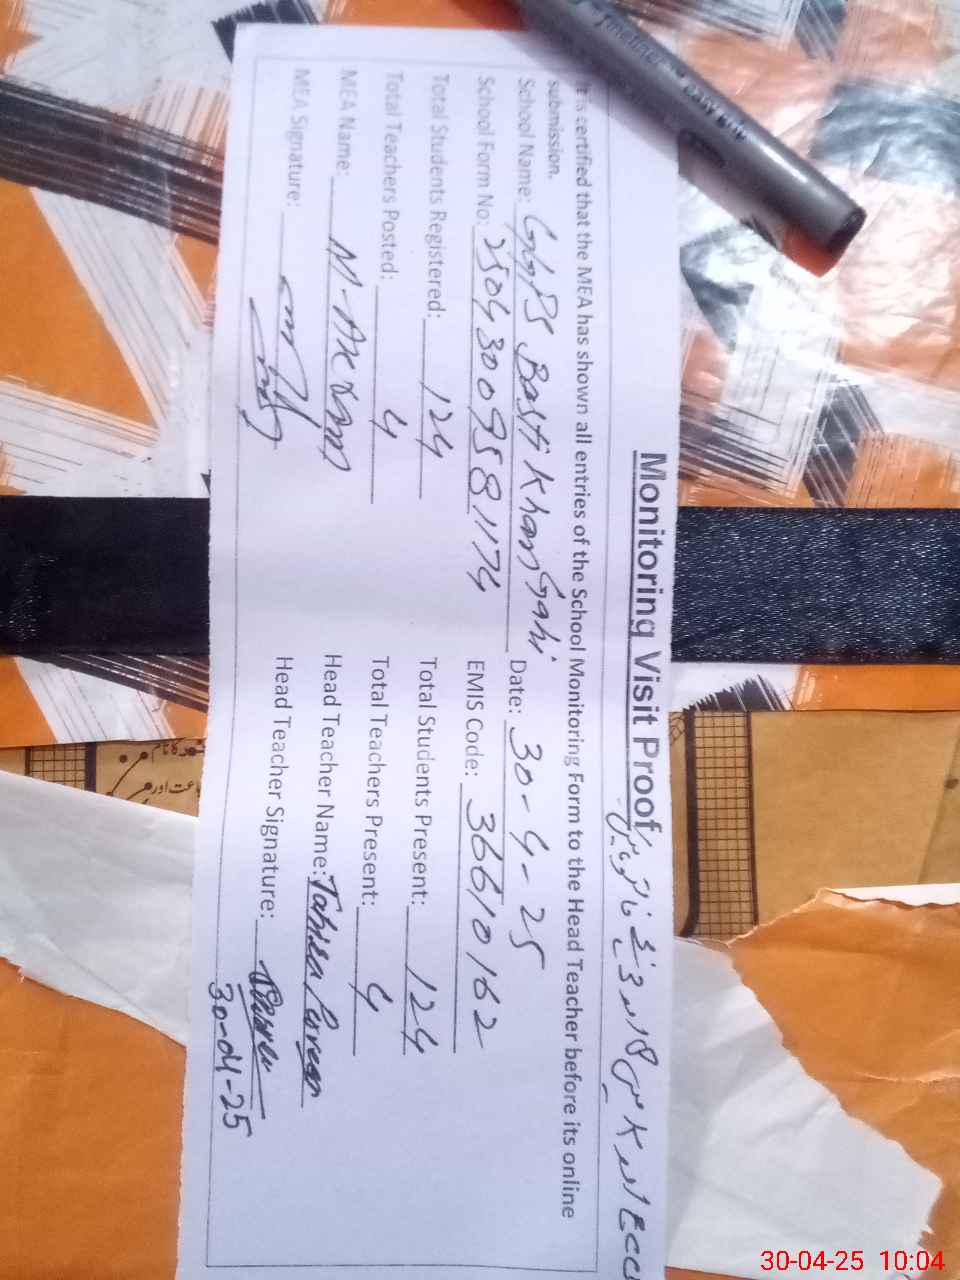 Monitoring Visit Proof
It is certified that the MEA has shown all entries of the School Monitoring Form to the Head Teacher before its online
submission.
School Name: GGPS Basti Khan Gahi Date: 30-4-25
School Form No: 25043009581174 EMIS Code: 36610162
Total Students Registered: 124 Total Students Present: 124
Total Teachers Posted: 4 Total Teachers Present: 4
MEA Name: M. Akram Head Teacher Name:
MEA Signature: Head Teacher Signature:
30-04-25
ECC
30-04-25 10:04